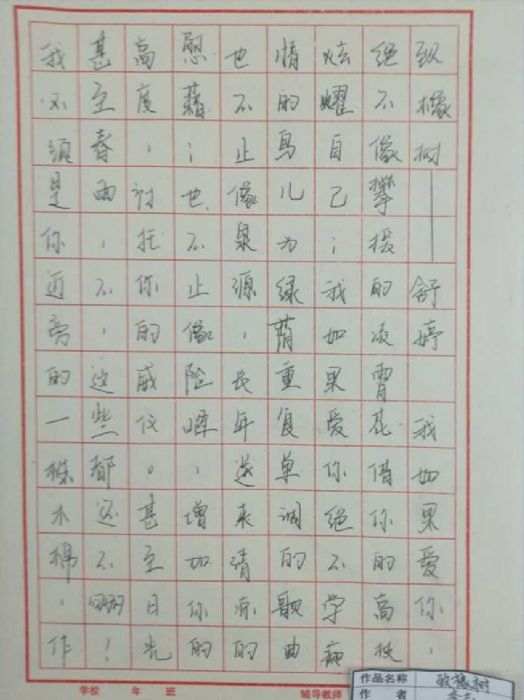 致橡树——舒婷 我如果爱你,
绝不像攀援的凌霄花借你的高枝
炫耀自己;我如果爱你绝不学痴
情的鸟儿为绿荫重复单调的歌曲
也不止像泉源,长年送来清凉的
慰藉;也不止像险峰,增加你的
高度,衬托你的威仪。甚至日光
甚至春雨,不,这些都还不够!
我必须是你近旁的一株木棉,作
学校 年 班 辅导教师
作品名称 致橡树
作者